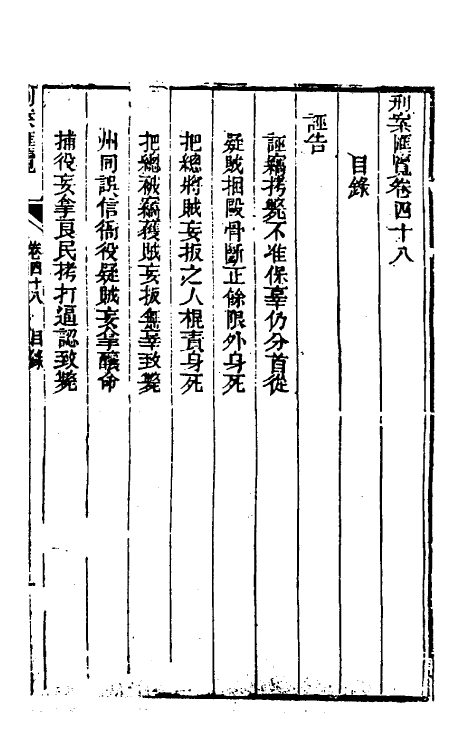 刑案匯覽卷四十八
目錄
誣告
誣竊拷斃不准保辜仍分首從
疑賊捆毆骨斷正餘限外身死
把總將賊妄扳之人棍責身死
把總被竊獲賊妄扳無辜致斃
州同誤信衙役疑賊妄拿釀命
捕役妄拿良民拷打逼認致斃
刑案匯覽 卷四十八 目錄